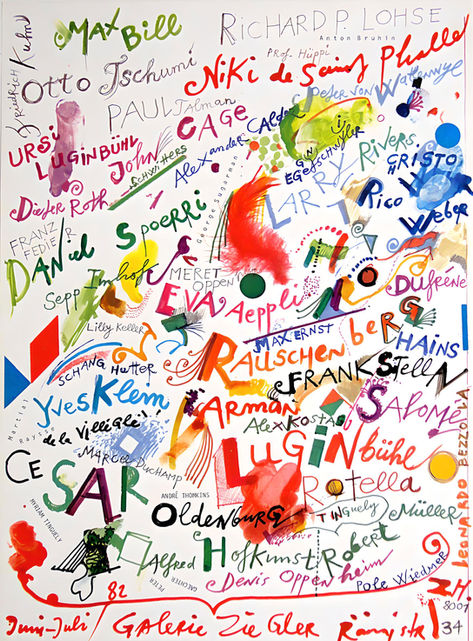 MAX Bill
RICHARD P. LOHSE
Anton Bruhin
FRiEDRiCH Kuhn
Otto Tschumi
Prof. Hüppi
NiKi de Saint Phalle
Peter von Wattenwyl
PAUL Talman
URSi LUGiNBÜHL
CAGE
John
SCHWiTTERS
Alexander CALDER
EGGENSCHWiLER
LARRY RIVERS
CRiSTO
Dieter Roth
George Sugarman
Rico Weber
FRANZ FEDiER
DANiEL Spoerri
Sepp Imhoff
MERET OPPEN
EVA Aeppli
Dufrêne
Lilly Keller
MAX ERNST
RAUSCHENbERG
HAiNS
SCHANG Hutter
FRANK STELLA
Martial Raysse
YvesKlein
ARMAN
de la Villeglé!
Alex Kostas
Salomé
MARCEL DUCHAMP
LUGiNbühl
CESAR
ANDRÉ THOMKINS
Rotella
LeONARDO BEZZOLA
MYRIAM TINGUELY
OLDENBURG
TiNGuely
Müller
Alfred Hofkunst
Robert
PETER GAECHTER
Denis Oppenheim
Pole Wiedmer
82
ZH.
8001
Juni-Juli/ GALERiE ZiEGLER Rämistr 34